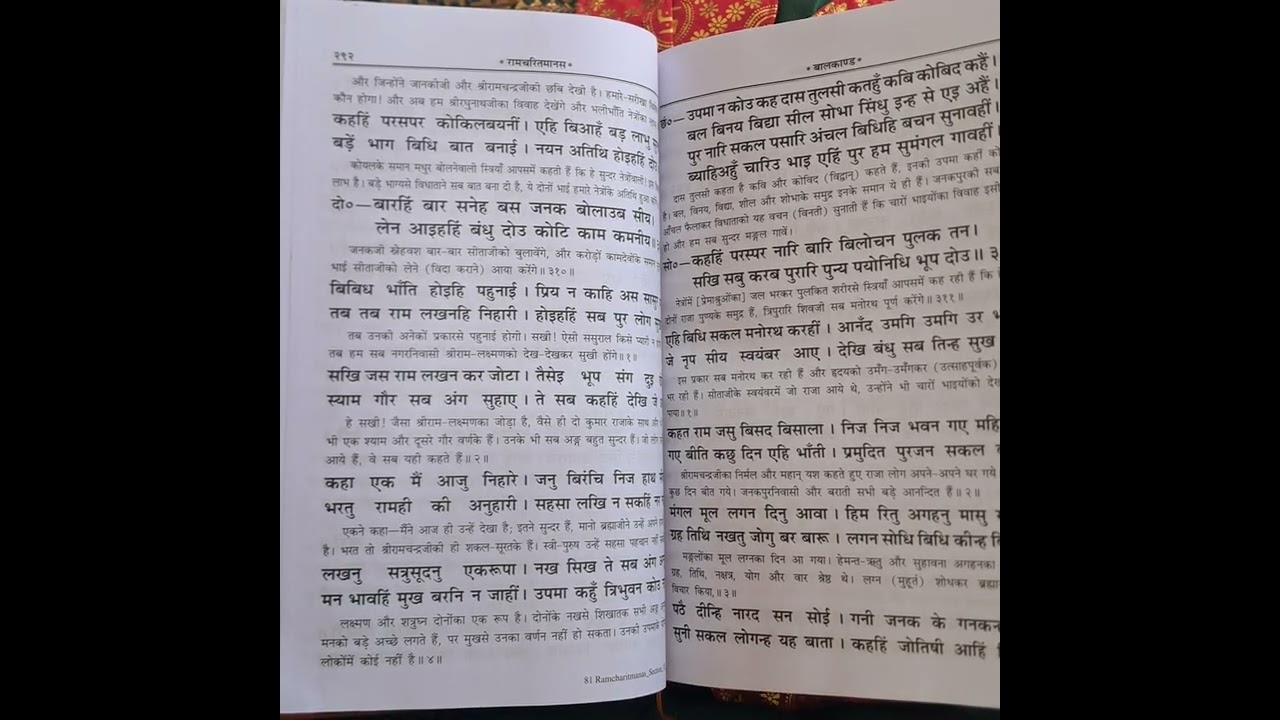 २९२
* रामचरितमानस *
और जिन्होंने जानकीजी और श्रीरामचन्द्रजीकी छबि देखी है। हमारे-सरीखा
कौन होगा! और अब हम श्रीरघुनाथजीका विवाह देखेंगे और भलीभाँति नेत्रोंका
कहहिं परसपर कोकिलबयनीं। एहि बिआहँ बड़ लाभु
बड़ें भाग बिधि बात बनाई। नयन अतिथि होइहहिं दोउ
कोयलके समान मधुर बोलनेवाली स्त्रियाँ आपसमें कहती हैं कि हे सुन्दर नेत्रोंवाली!
लाभ है। बड़े भाग्यसे विधाताने सब बात बना दी है, ये दोनों भाई हमारे नेत्रोंके अतिथि हुआ
दो०—बारहिं बार सनेह बस जनक बोलाउब सीय।
लेन आइहहिं बंधु दोउ कोटि काम कमनीय॥
जनकजी स्नेहवश बार-बार सीताजीको बुलावेंगे, और करोड़ों कामदेवोंके
भाई सीताजीको लेने (विदा कराने) आया करेंगे॥३१०॥
बिबिध भाँति होइहि पहुनाई। प्रिय न काहि अस
तब तब राम लखनहि निहारी। होइहहिं सब पुर लोग
तब उनकी अनेकों प्रकारसे पहुनाई होगी। सखी! ऐसी ससुराल किसे प्यारी न
तब हम सब नगरनिवासी श्रीराम-लक्ष्मणको देख-देखकर सुखी होंगे॥१॥
सखि जस राम लखन कर जोटा। तैसेइ भूप संग दुइ
स्याम गौर सब अंग सुहाए। ते सब कहहिं देखि जे
हे सखी! जैसा श्रीराम-लक्ष्मणका जोड़ा है, वैसे ही दो कुमार राजाके साथ और
भी एक श्याम और दूसरे गौर वर्णके हैं। उनके भी सब अङ्ग बहुत सुन्दर हैं। जो लोग
आये हैं, वे सब यही कहते हैं॥२॥
कहा एक मैं आजु निहारे। जनु बिरंचि निज हाथ
भरतु रामही की अनुहारी। सहसा लखि न सकहिं नर
एकने कहा—मैंने आज ही उन्हें देखा है; इतने सुन्दर हैं, मानो ब्रह्माजीने उन्हें अपने
है। भरत तो श्रीरामचन्द्रजीकी ही शकल-सूरतके हैं। स्त्री-पुरुष उन्हें सहसा पहचान नहीं
लखनु सत्रुसूदनु एकरूपा। नख सिख ते सब अंग
मन भावहिं मुख बरनि न जाहीं। उपमा कहुँ त्रिभुवन कोउ
लक्ष्मण और शत्रुघ्न दोनोंका एक रूप है। दोनोंके नखसे शिखातक सभी अङ्ग
मनको बड़े अच्छे लगते हैं, पर मुखसे उनका वर्णन नहीं हो सकता। उनकी उपमाके
लोकोंमें कोई नहीं है॥४॥
81 Ramcharitmanas_Section
* बालकाण्ड *
छं०—उपमा न कोउ कह दास तुलसी कतहुँ कबि कोबिद कहैं।
बल बिनय बिद्या सील सोभा सिंधु इन्ह से एइ अहैं॥
पुर नारि सकल पसारि अंचल बिधिहि बचन सुनावहीं।
ब्याहिअहुँ चारिउ भाइ एहिं पुर हम सुमंगल गावहीं॥
दास तुलसी कहता है कवि और कोविद (विद्वान्) कहते हैं, इनकी उपमा कहीं कोई
है। बल, विनय, विद्या, शील और शोभाके समुद्र इनके समान ये ही हैं। जनकपुरकी सब
आँचल फैलाकर विधाताको यह वचन (विनती) सुनाती हैं कि चारों भाइयोंका विवाह इसी
हो और हम सब सुन्दर मङ्गल गावें।
सो०—कहहिं परस्पर नारि बारि बिलोचन पुलक तन।
सखि सबु करब पुरारि पुन्य पयोनिधि भूप दोउ॥
नेत्रोंमें [प्रेमाश्रुओंका] जल भरकर पुलकित शरीरसे स्त्रियाँ आपसमें कह रही हैं कि
दोनों राजा पुण्यके समुद्र हैं, त्रिपुरारि शिवजी सब मनोरथ पूर्ण करेंगे॥३११॥
एहि बिधि सकल मनोरथ करहीं। आनँद उमगि उमगि उर
जे नृप सीय स्वयंबर आए। देखि बंधु सब तिन्ह सुख
इस प्रकार सब मनोरथ कर रही हैं और हृदयको उमँग-उमँगकर (उत्साहपूर्वक)
भर रही हैं। सीताजीके स्वयंवरमें जो राजा आये थे, उन्होंने भी चारों भाइयोंको
पाया॥१॥
कहत राम जसु बिसद बिसाला। निज निज भवन गए
गए बीति कछु दिन एहि भाँती। प्रमुदित पुरजन सकल
श्रीरामचन्द्रजीका निर्मल और महान् यश कहते हुए राजा लोग अपने-अपने घर गये
कुछ दिन बीत गये। जनकपुरनिवासी और बराती सभी बड़े आनन्दित हैं॥२॥
मंगल मूल लगन दिनु आवा। हिम रितु अगहनु मासु
ग्रह तिथि नखतु जोगु बर बारू। लगन सोधि बिधि कीन्ह
मङ्गलोंका मूल लग्नका दिन आ गया। हेमन्त-ऋतु और सुहावना अगहनका
ग्रह, तिथि, नक्षत्र, योग और वार श्रेष्ठ थे। लग्न (मुहूर्त) शोधकर
विचार किया,॥३॥
पठै दीन्हि नारद सन सोई। गनी जनक के
सुनी सकल लोगन्ह यह बाता। कहहिं जोतिषी आहिं